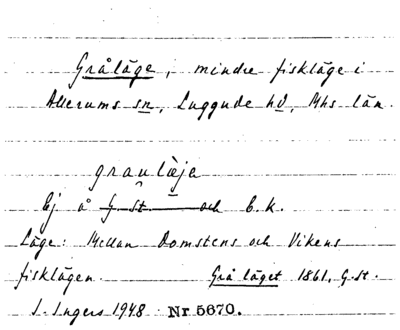 Gråläge, mindre fiskläge i
Allerums sn, Luggude hd, Mhs län.
grauläje
Ej å G. st. och E.K.
Läge: Mellan Domstens och Vikens
fisklägen. Grå läget 1861, G.st.
I. Ingers 1948 Nr 5670.